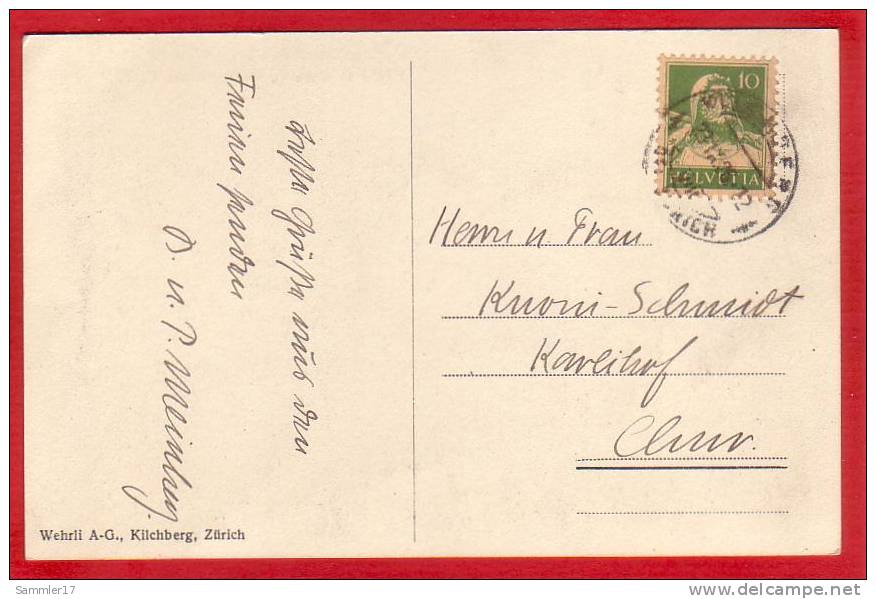 Beste Grüße aus den
Ferien senden
B. u. P. Meinherz.
Wehrli A-G., Kilchberg, Zürich
10
HELVETIA
Herrn u Frau
Kuoni-Schmidt
Karlihof
Chur.
Sammler17
www.delcampe.net